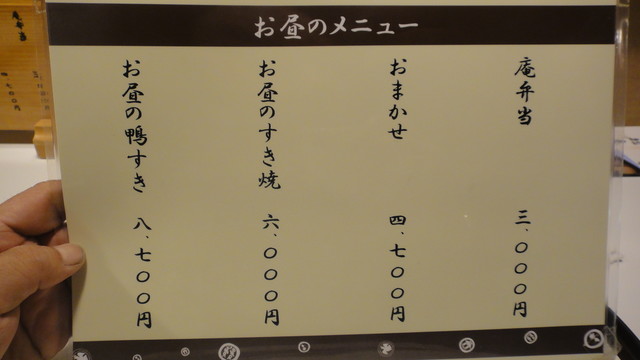 お昼のメニュー
庵弁当 三、〇〇〇円
おまかせ 四、七〇〇円
お昼のすき焼 六、〇〇〇円
お昼の鴨すき 八、七〇〇円